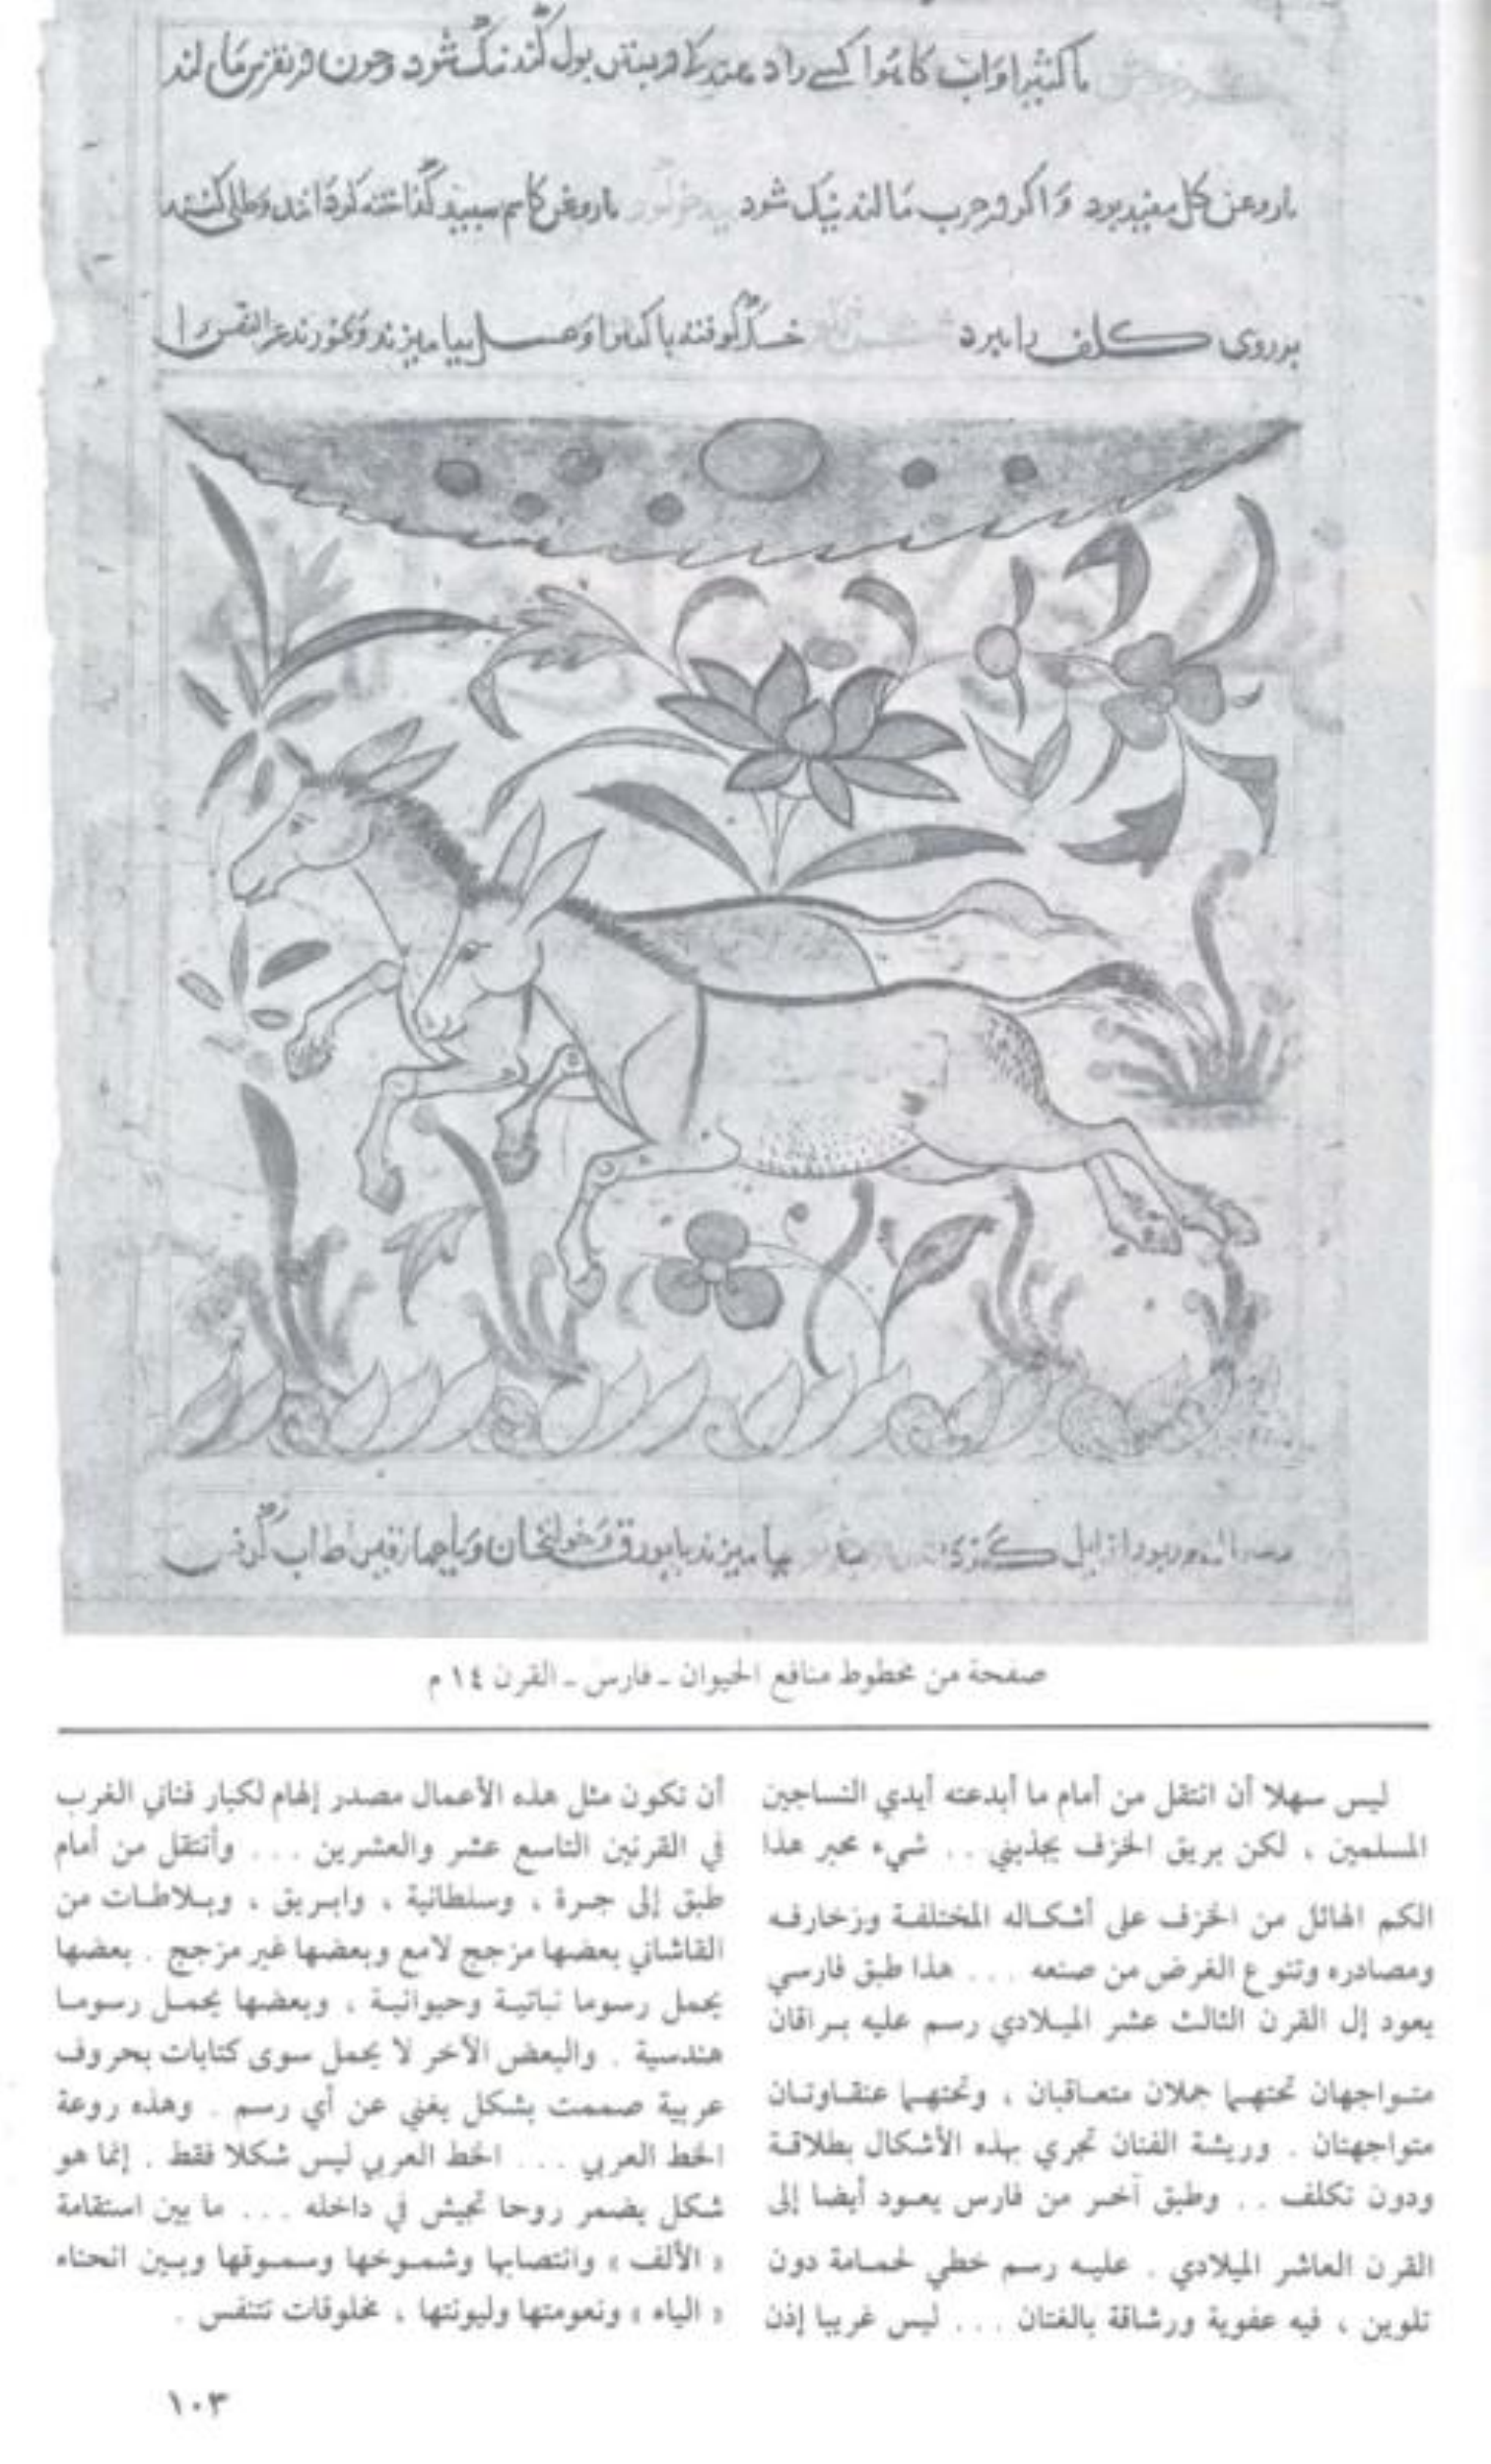 باکثیرا و آب
شود و چون در نقرس مالند
با روغن کل مفید بود و اکر در جرب مالند نیک شود
با روغن کاسم سپید کداخته کردانند و طلی کنند
بر روی کلف را ببرد
بیامیزند و بخورند عرالنفس را
بیامیزند با بورق و خولنجان
صفحة من مخطوط منافع الحيوان ـ فارس ـ القرن ١٤ م
ليس سهلا أن انتقل من أمام ما أبدعته أيدي النساجين
المسلمين ، لكن بريق الخزف يجذبني . . شيء محير هذا
الكم الهائل من الخزف على أشكاله المختلفة وزخارفه
ومصادره وتنوع الغرض من صنعه . . . هذا طبق فارسي
يعود إل القرن الثالث عشر الميلادي رسم عليه براقان
متواجهان تحتهما جملان متعاقبان ، وتحتهما عنقاوتان
متواجهتان . وريشة الفنان تجري بهذه الأشكال بطلاقة
ودون تكلف . . وطبق آخر من فارس يعود أيضا إلى
القرن العاشر الميلادي . عليه رسم خطي لحمامة دون
تلوين ، فيه عفوية ورشاقة بالغتان . . . ليس غريبا إذن
أن تكون مثل هذه الأعمال مصدر إلهام لكبار فناني الغرب
في القرنين التاسع عشر والعشرين . . . وأنتقل من أمام
طبق إلى جرة ، وسلطانية ، وابريق ، وبلاطات من
القاشاني بعضها مزجج لامع وبعضها غير مزجج . بعضها
يحمل رسوما نباتية وحيوانية ، وبعضها يحمل رسوما
هندسية . والبعض الآخر لا يحمل سوى كتابات بحروف
عربية صممت بشكل يغني عن أي رسم . وهذه روعة
الخط العربي . . . الخط العربي ليس شكلا فقط . إنما هو
شكل يضمر روحا تجيش في داخله . . . ما بين استقامة
« الألف » وانتصابها وشموخها وسموقها وبين انحناء
« الياء » ونعومتها وليونتها ، مخلوقات تتنفس .
١٠٣